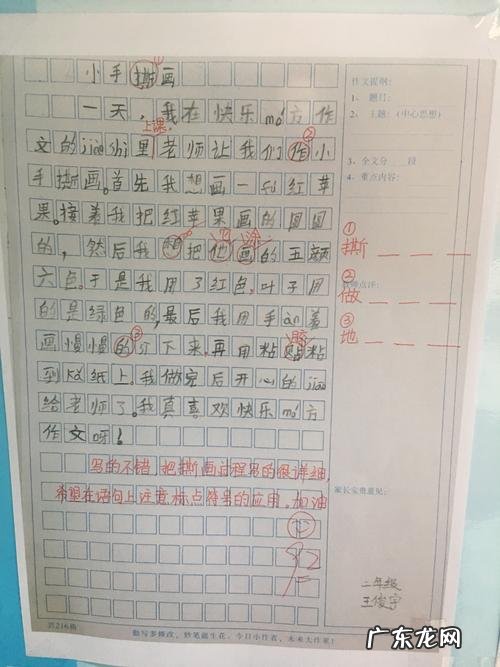 小手撕画
一天，我在快乐mó方作
文的jiàoshì里老师让我们作小
上课，
手撕画。首先我想画一fú红苹
果。接着我把红苹果画的圆圆
的，然后我想把他画的五颜
六色。于是我用了红色。叶子用
的是绿色的，最后我用手àn着
画慢慢的撕下来。再用粘贴粘
胶
到kǎ纸上。我做完后开心的jiāo
给老师了。我真喜欢快乐mó方
作文呀！
写的不错，把撕画过程写的很详细，
希望在语句上注意标点符号的应用。加油
共216格
勤写多修改，妙笔能生花，今日小作者，未来大作家！
作文提纲：
1、 题目：
2、 主题：（中心思想）
3、全文分 段
4、重点内容：
① 撕
② 做
教师点评：
③ 地
家长宝贵意见：
二年级
王俊宇
广东龙网